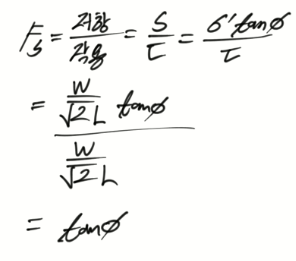 Fs = 저항/작용 = S/τ = σ'tanø/τ
= (W/√2 L tanø)/(W/√2 L)
= tanø